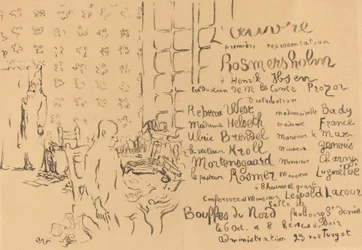 L'œuvre
première représentation
Rosmersholm
d'Henrik Ibsen
traduction de M. le comte Prozor
Distribution
Rebecca West mademoiselle Bady
Madame Helseth madame France
Ulric Brendel Monsieur de Max
le recteur Kroll Monsieur
Mortensgaard Monsieur Charny
le pasteur Rosmer Monsieur Lugné Poe
à 8 heures
Conférence de Monsieur Léopold Lacour
Salle des
Bouffes du Nord faubourg St Denis
le 6 Oct. à 8
administration 23 rue Turgot